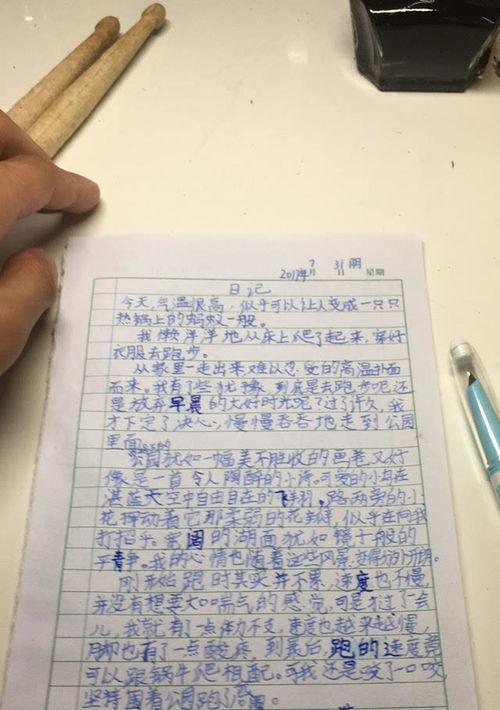 2017年7月31日 阴 星期
日记
今天,气温很高,似乎可以让人变成一只只
热锅上的蚂蚁一般。
我懒洋洋地从床上爬了起来,穿好
衣服去跑步。
从家里一走出来难以忍受的高温扑面
而来。我有了些犹豫,到底是去跑步呢还
是放弃早晨的大好时光呢?过了许久,我
才下定了决心,慢慢吞吞地走到公园
里面
公园就如一幅美不胜收的画卷,又好
像是一首令人陶醉的小诗。可爱的小鸟在
湛蓝天空中自由自在的飞翔,路边旁的小
花挥动着它那柔弱的花瓣,似乎在向我
打招乎。宽阔的湖面犹如镜子般的
平静。我的心情也随着这些风景变得格外开朗。
刚开始跑时其实并不累,速度也不慢,
并没有想要大口喘气的感觉,可是才过了一会
儿,我就有了一点体力不支,速度也越来越慢,
脚也有了一点酸疼,到最后,跑的速度竟
可以跟蜗牛爬相配。可我还是咬了一口咬
坚持围着公园跑了